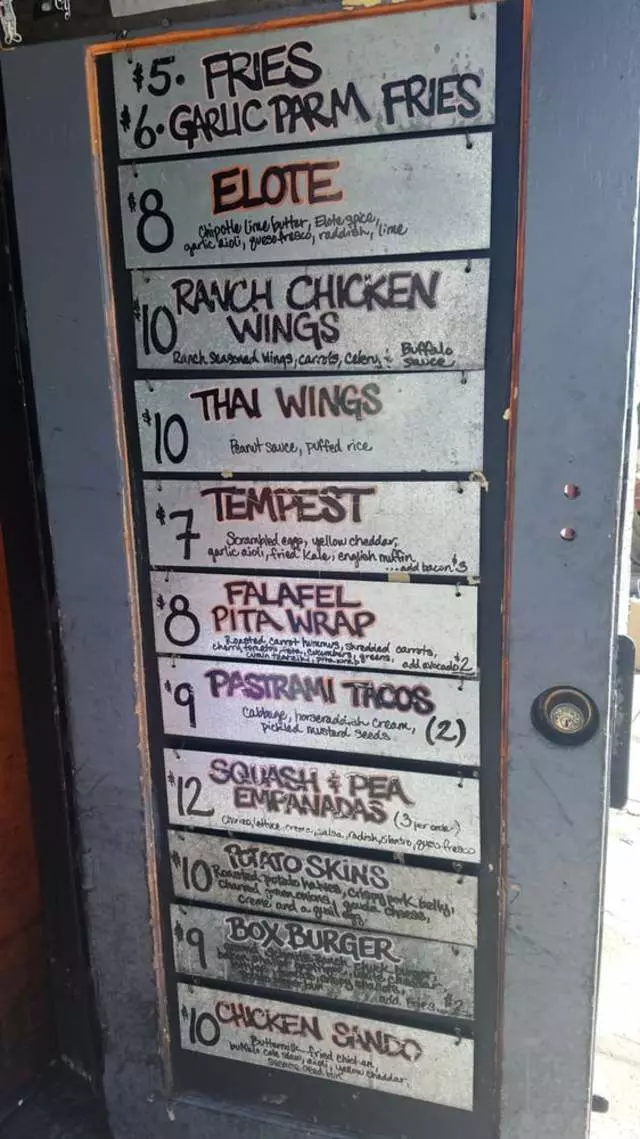 $5. FRIES
$6. GARLIC PARM FRIES
$8 ELOTE
Chipotle lime butter, Elote spice,
garlic aioli, queso fresco, raddish, lime
$10 RANCH CHICKEN
WINGS
Ranch Seasoned Wings, carrots, celery & Buffalo
sauce
$10 THAI WINGS
Peanut sauce, puffed rice
$7 TEMPEST
Scrambled eggs, yellow cheddar,
garlic aioli, fried kale, english muffin
...add bacon $3
$8 FALAFEL
PITA WRAP
Roasted carrot hummus, shredded carrots,
cherry tomatoes, cucumbers, greens,
pita wrap add avocado $2
$9 PASTRAMI TACOS
Cabbage, horseraddish cream, (2)
pickled mustard seeds
$12 SQUASH & PEA
EMPANADAS (3 per order)
lettuce, creme, salsa, radish, cilantro, queso fresco
$10 POTATO SKINS
Roasted potato halves, crispy pork belly,
charred onions, gouda cheese,
creme and a quail egg
$9 BOX BURGER
chuck burger,
add fries... $2
$10 CHICKEN SANDO
Buttermilk fried chicken,
buffalo cole slaw, aioli, yellow cheddar,